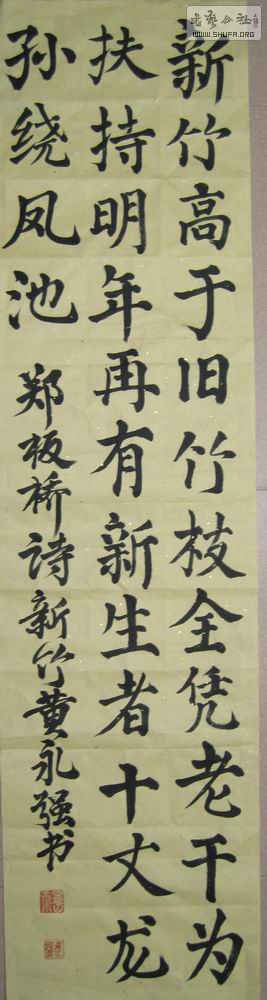 新竹高于旧竹枝全凭老干为
扶持明年再有新生者十丈龙
孙绕凤池
郑板桥诗新竹黄永强书
书艺公社
WWW.SHUFA.ORG